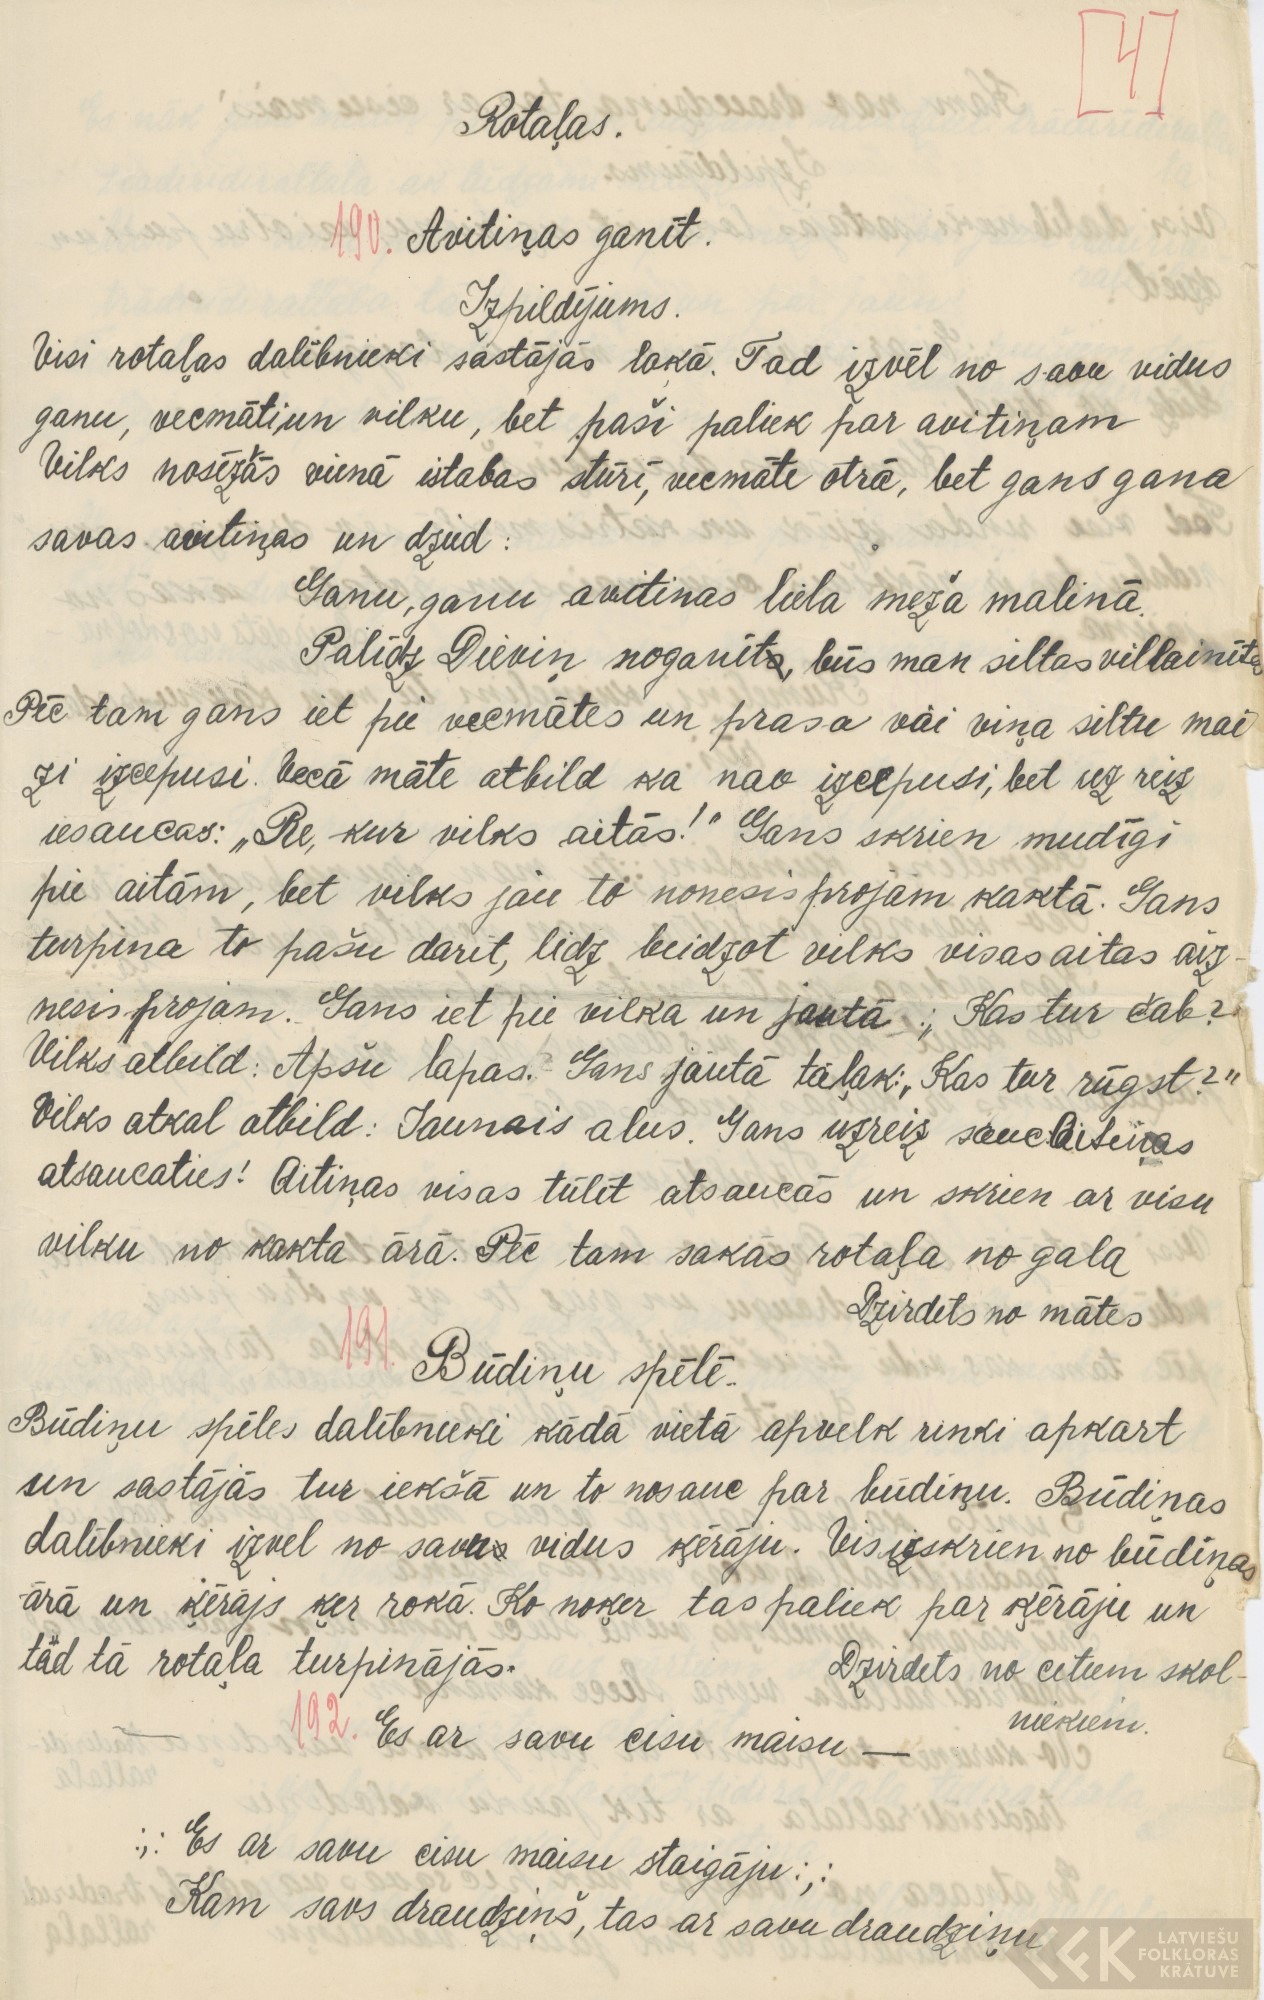 [4]
Rotaļas.
190. Avitiņas ganīt.
Izpildījums.
Visi rotaļas dalībnieki sastājās lokā. Tad izvēl no savu vidus
ganu, vecmāti, un vilku, bet paši paliek par avitiņam
Vilks nosēžās vienā istabas stūrī, vecmāte otrā, bet gans gana
savas avitiņas un dzied:
Ganu, ganu avitinas liela meža malinā.
Palīdz Dieviņ noganīt, būs man siltas villainītes
Pēc tam gans iet pie vecmātes un prasa vai viņa siltu mai
zi izcepusi. Vecā māte atbild ka nav izcepusi, bet uz reiz
iesaucas: „Re, kur vilks aitās!" Gans skrien mudīgi
pie aitām, bet vilks jau to nonesis projām kaktā. Gans
turpina to pašu darīt, līdz beidzot vilks visas aitas aiz-
nesis projam. Gans iet pie vilka un jautā :„ Kas tur čab?
Vilks atbild: Apšu lapas. Gans jautā tāļak:„ Kas tur rūgst?"
Vilks atkal atbild: Jaunais alus. Gans uzreiz sauc Aitiņas
atsaucaties! Aitiņas visas tūlīt atsaucās un skrien ar visu
vilku no kakta ārā. Pēc tam sakās rotaļa no gala
Dzirdēts no mātes
191. Būdiņu spēlē.
Būdiņu spēles dalībnieki kādā vietā apvelk rinki apkart
un sastājās tur iekšā un to nosauc par būdiņu. Būdiņas
dalībnieki izvel no savus vidus ķērāju. Visi izskrien no būdiņas
ārā un ķērājs ķer rokā. Ko noķer tas paliek par ķērāju un
tād tā rotaļa turpinājās.
Dzirdets no citiem skol-
niekiem.
192. Es ar savu cisu maisu —
:,: Es ar savu cisu maisu staigāju :,:
Kam savs draudziņš, tas ar savu draudziņu
LATVIEŠU
FOLKLORAS
KRĀTUVE